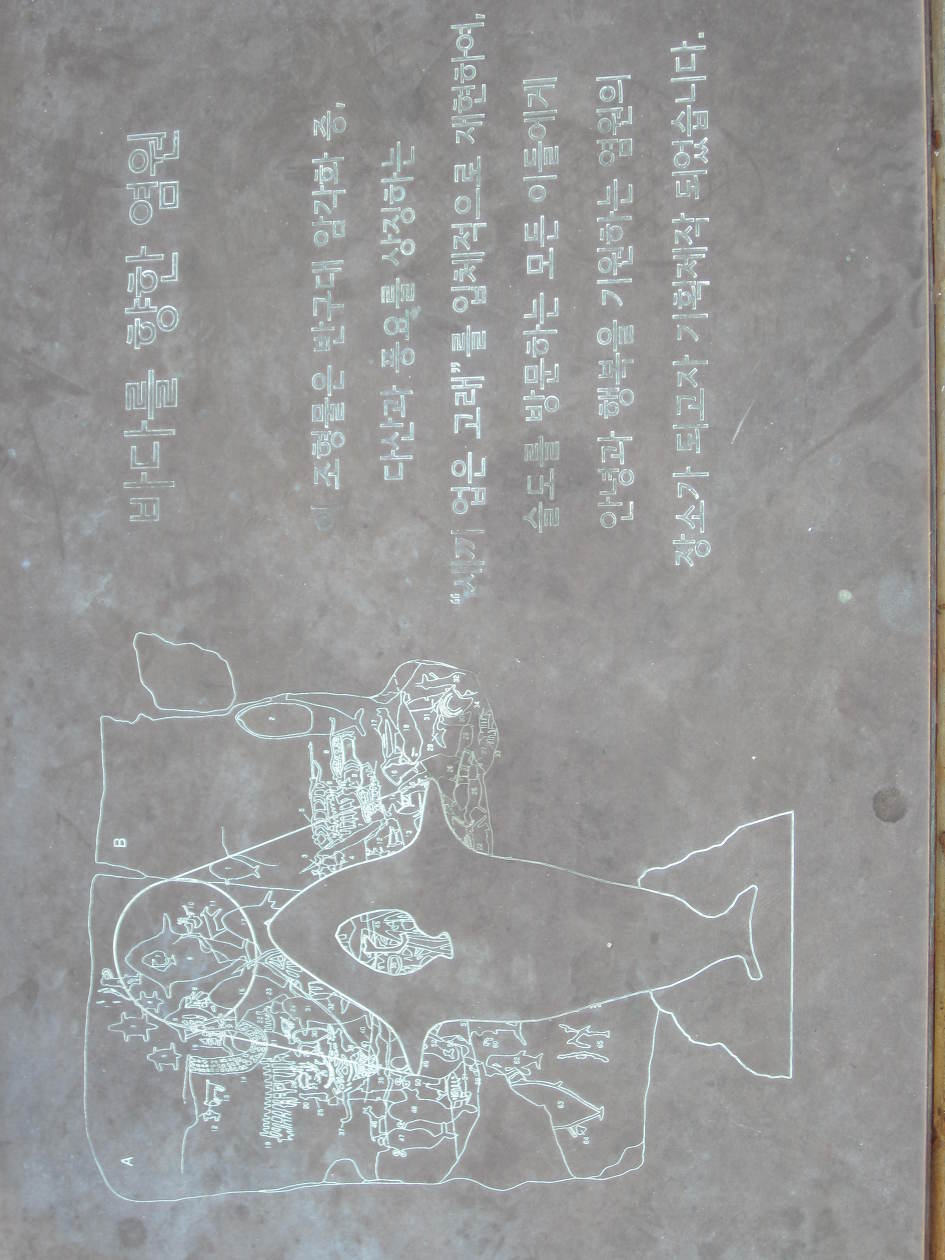 바다를 향한 염원
이 조형물은 반구대 암각화 중,
다산과 풍요를 상징하는
"새끼 업은 고래"를 입체적으로 재현하여,
슬도를 방문하는 모든 이들에게
안녕과 행복을 기원하는 염원의
장소가 되고자 기획제작 되었습니다.
A
B